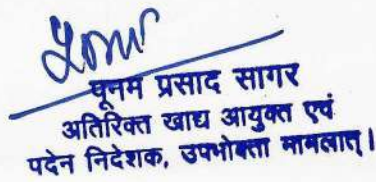 पूनम प्रसाद सागर
अतिरिक्त खाद्य आयुक्त एवं
पदेन निदेशक, उपभोक्ता मामलात्।